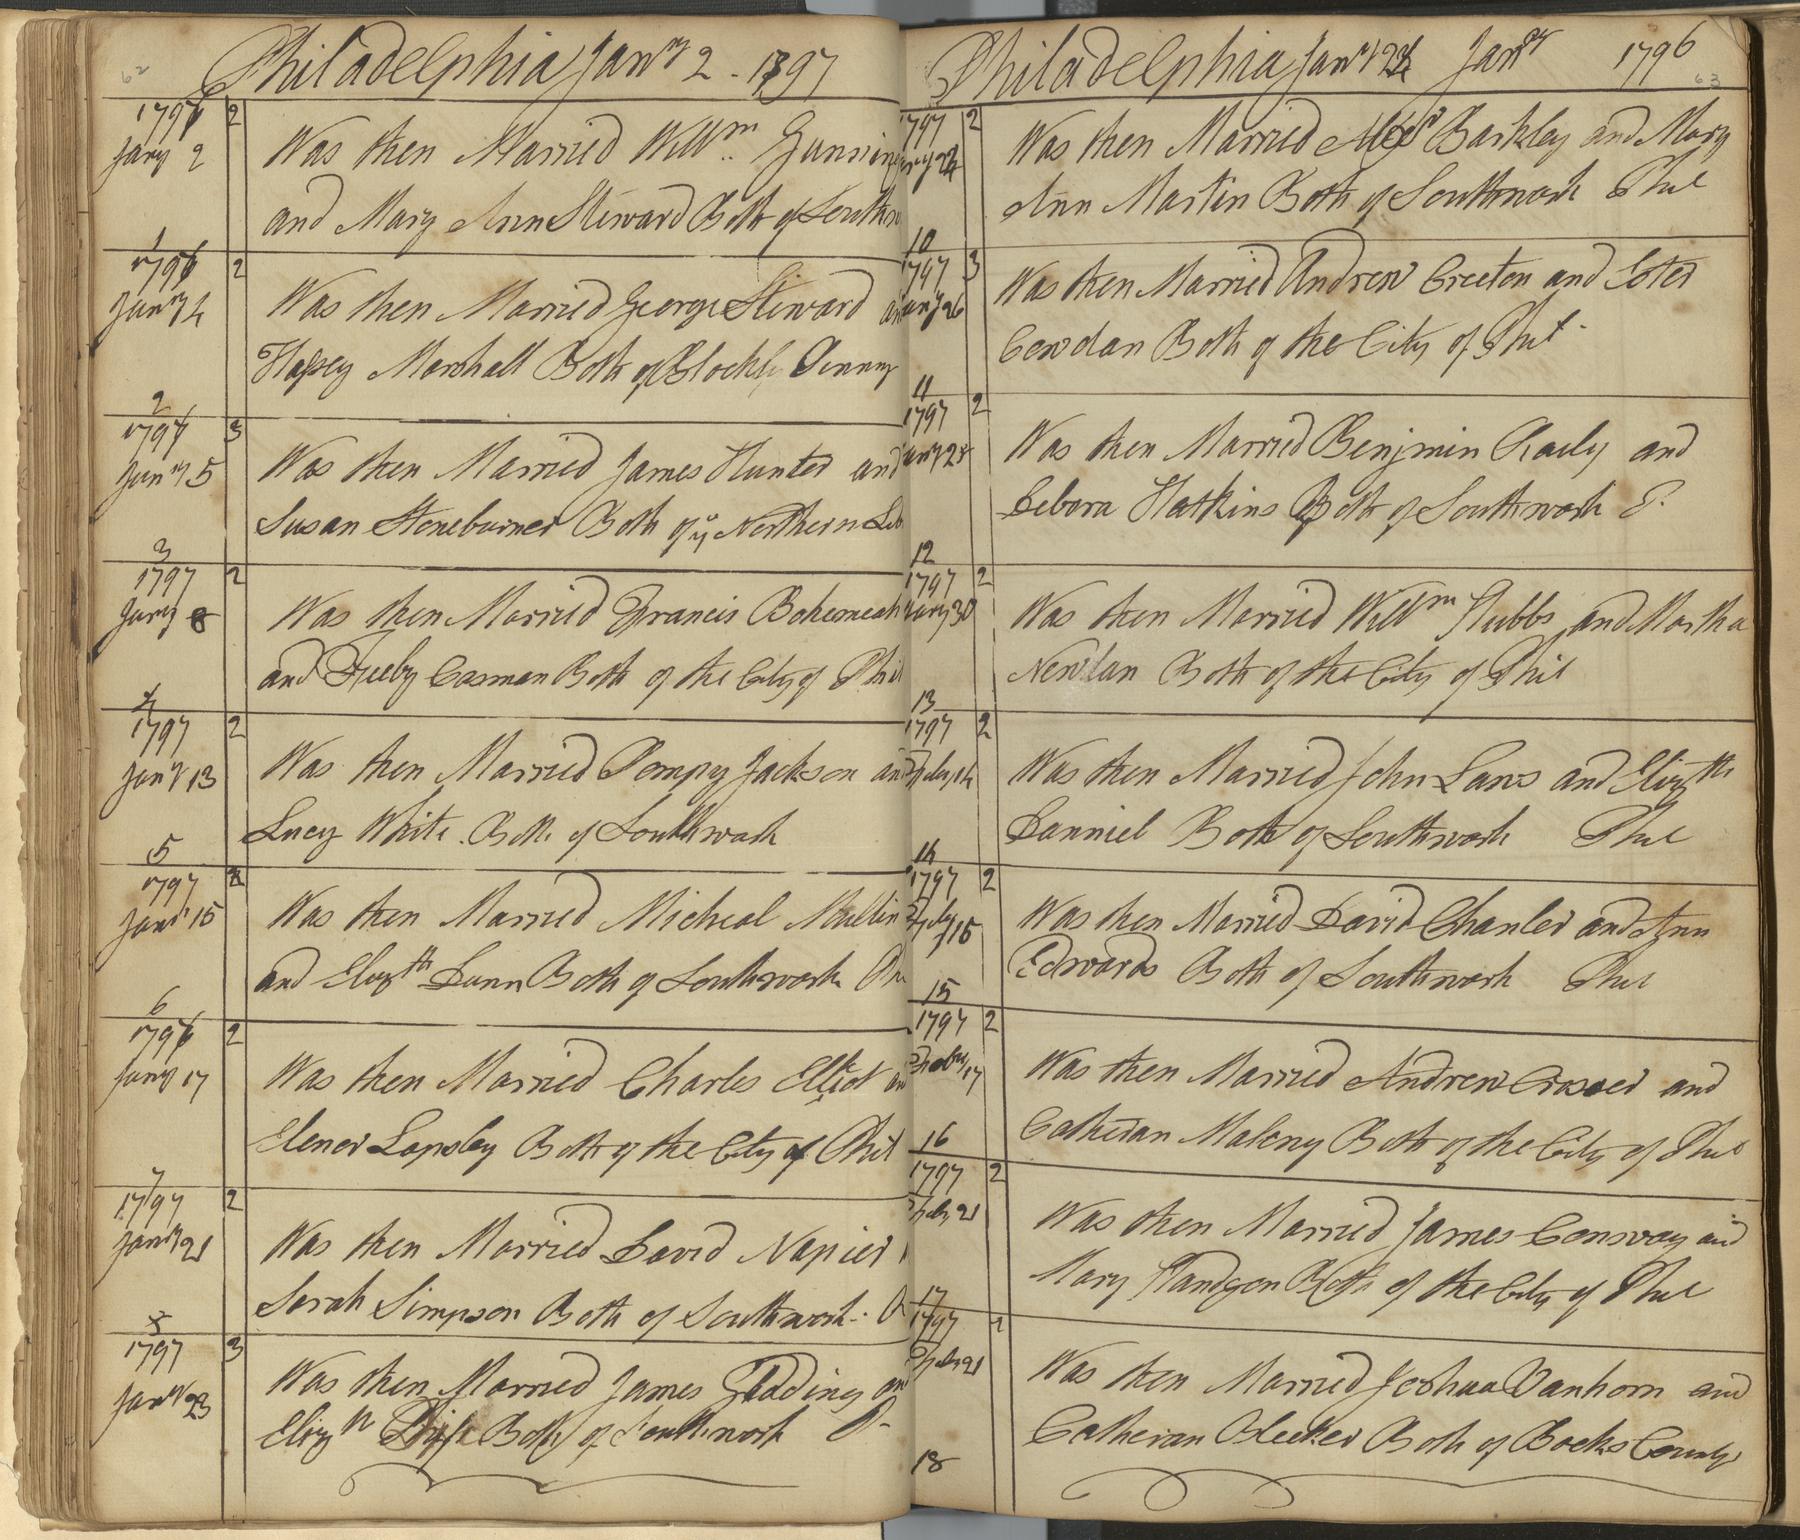 62
Philadelphia Janry 2 - 1797
1797
2
Jany 2
Was then Married Willm Gunning
and Mary Ann Steward Both of Southw
1
1797
2
Janry 4
Was then Married George Steward an
Hapsey Marshall Both of Blockly Penny
2
1797
3
Janry 5
Was then Married James Hunter and
Susan Stoneburner Both of ye Northern Lib
3
1797
2
Jany 8
Was then Married Francis
and Feeby Cosman Both of the City of Phil
4
1797
2
Janr 13
Was then Married Pompy Jackson an
Lucy White. Both of Southwark
5
1797
2
Janr 15
Was then Married Micheal Mullin
and Elizth Dunn Both of Southwark Ph
6
1797
2
Jany 17
Was then Married Charles Elliot an
Elenor Lapsley Both of the City of Phil
7
1797
2
Janry 21
Was then Married David Napier
Sarah Simpson Both of Southwork. P
8
1797
3
Janr 23
Was then Married James Gidding an
Elizth Both of Southwork P
Philadelphia Janr 24 Janry 1796
63
1797
2
any 24
Was then Married Alexr Barkley and Mary
Ann Martin Both of Southwark Phil
10
1797
3
any 26
Was then Married Andrew Creeton and Ester
Cowdan Both of the City of Phil
11
1797
2
any 28
Was then Married Benjmin Raely and
Debora Hatkins Both of Southwark P.
12
1797
2
any 30
Was then Married Willm Stubbs and Martha
Newlan Both of the City of Phil
13
1797
2
Feby 14
Was then Married John Laws and Elizth
Danniel Both of Southwark Phil
14
1797
2
Feby 15
Was then Married David Chanler and Ann
Edwards Both of Southwark Phil
15
1797
2
Febry 17
Was then Married Andrew Crosser and
Catheran Maleny Both of the City of Phil
16
1797
2
Feby 21
Was then Married James Conway and
Mary Both of the City of Phil
17
1797
2
Feby 21
Was then Married Joshua Vanhorn and
Catheran Bleeker Both of Bocks County
18